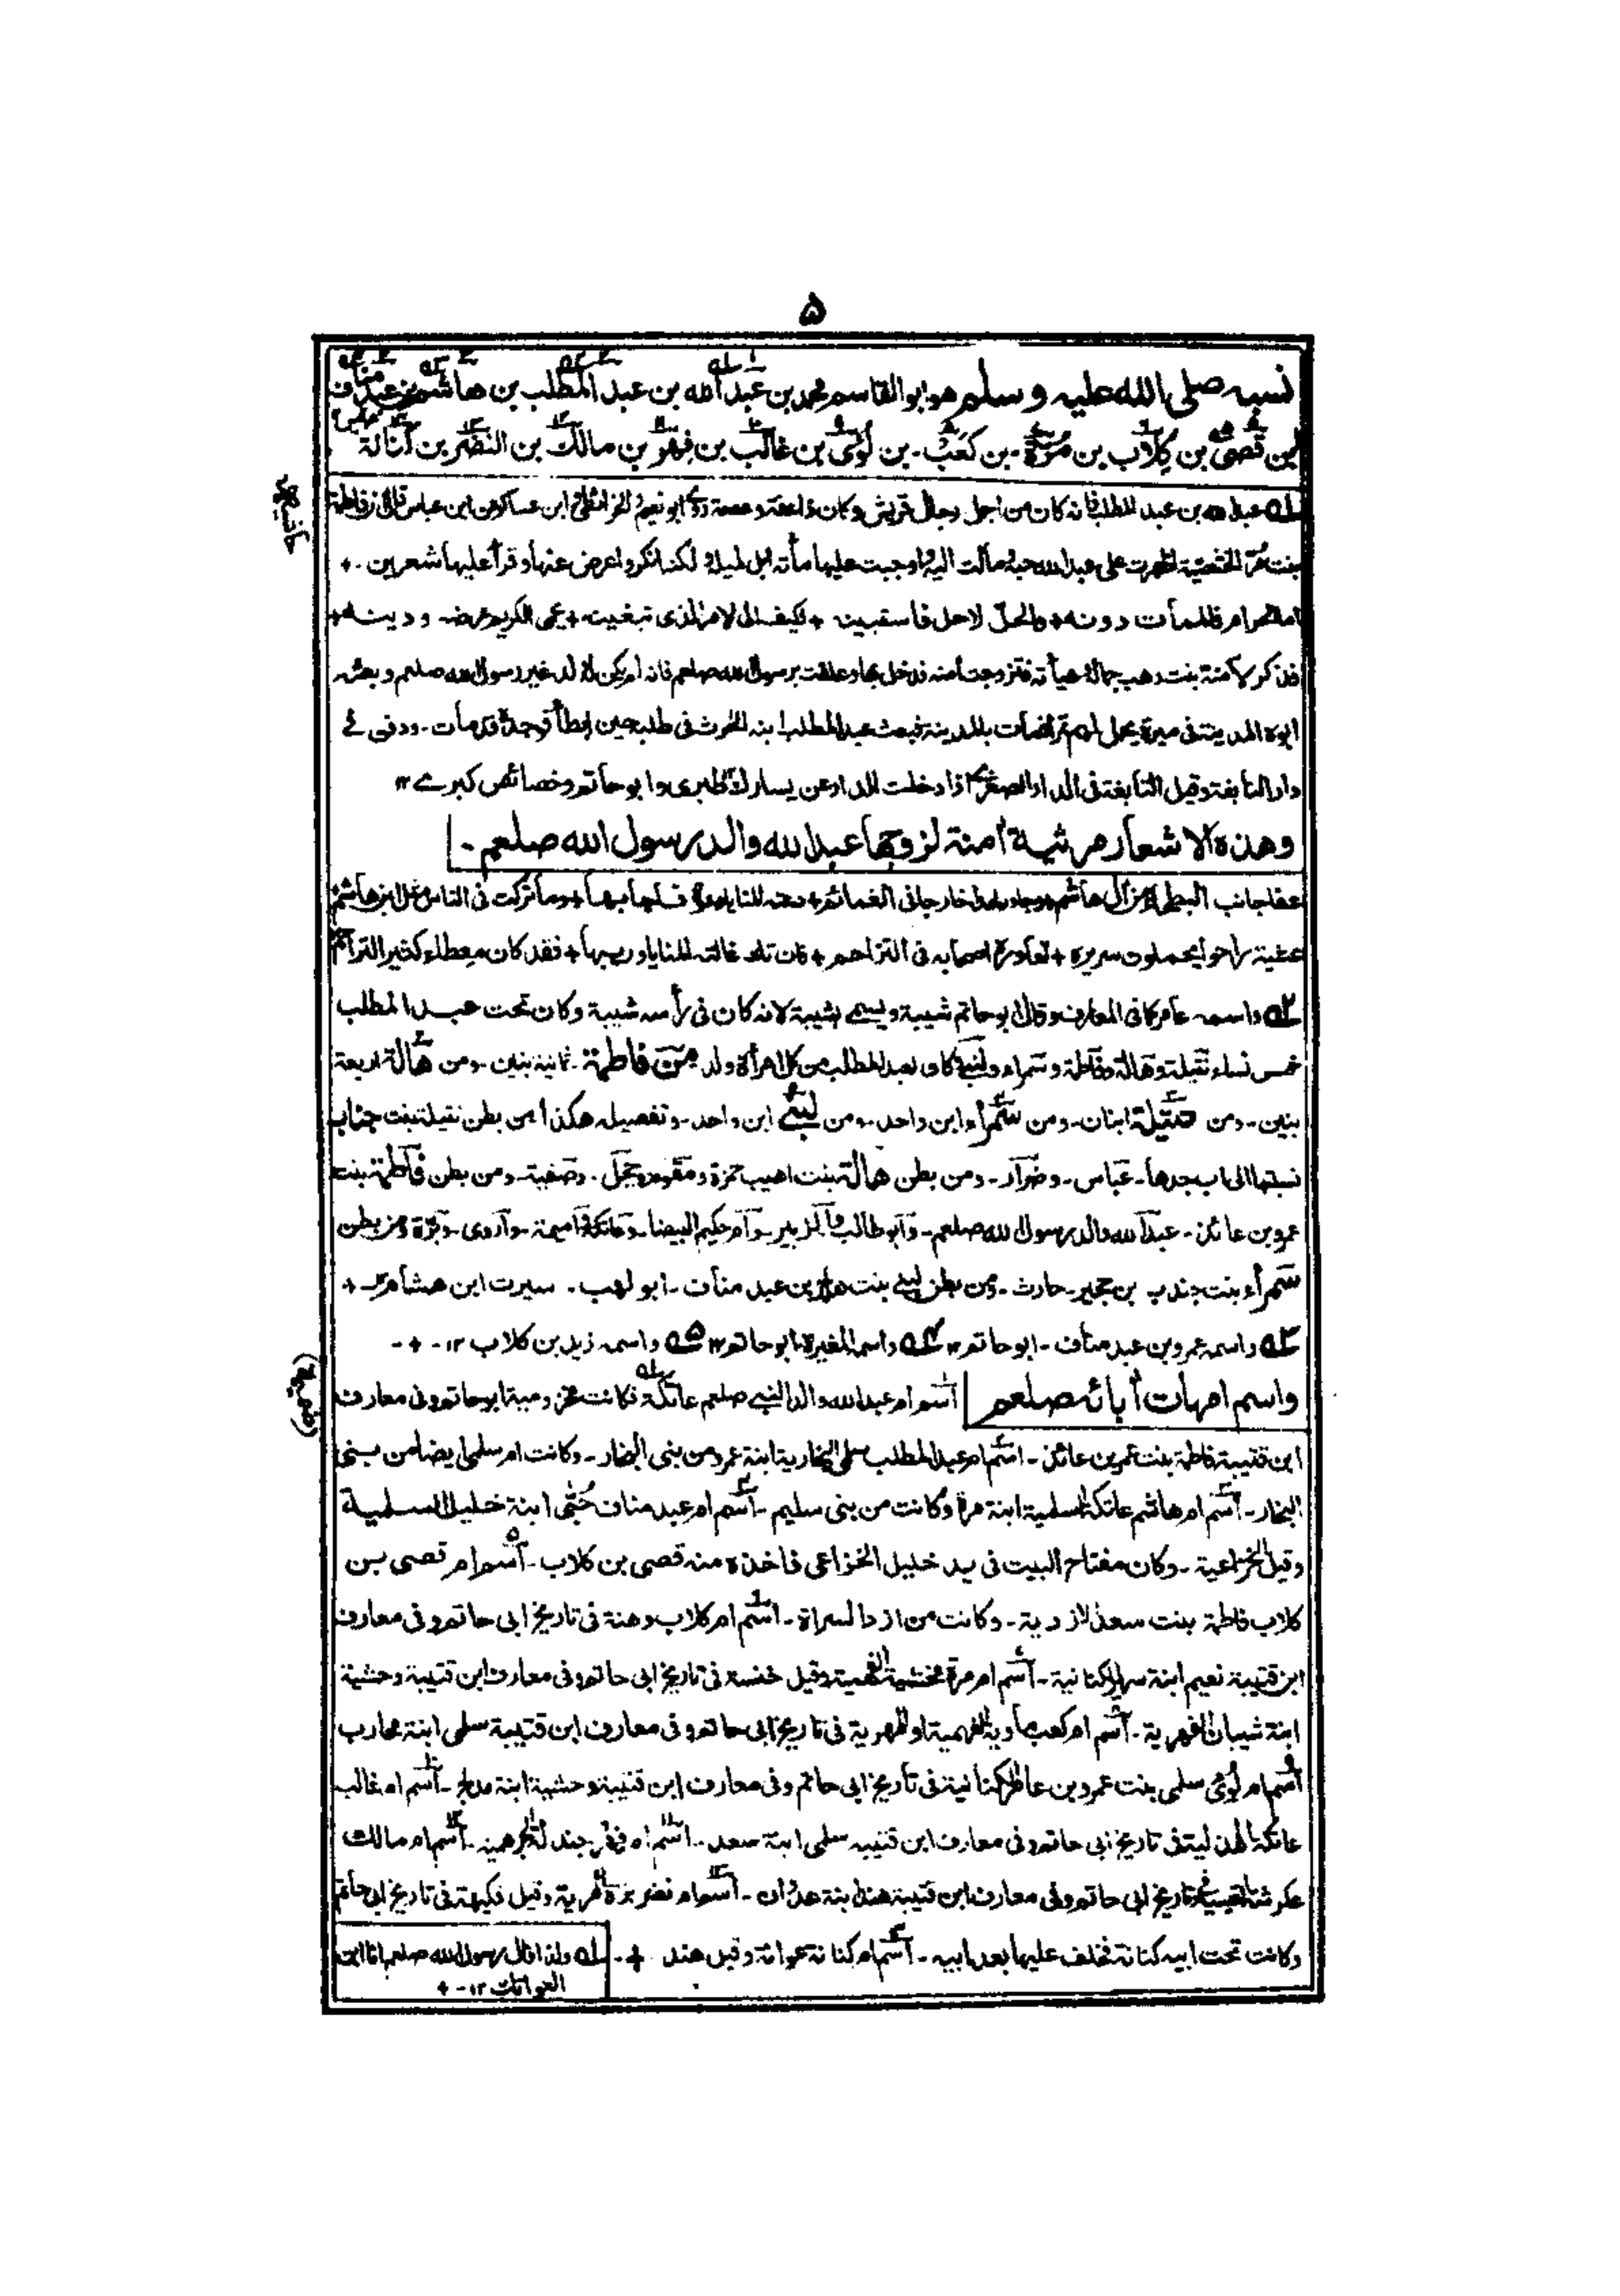 ۵
نسبہ صلی اللہ علیہ وسلم ھو ابو القاسم محمد بن عبد اللہ بن عبد المطلب بن ھاشم بن عبد مناف
بن قصی بن کلاب بن مرة۔ بن کعب۔ بن لوئی بن غالب بن فھر بن مالک بن النضر بن کنانة
حاشیہ
عبد اللہ بن عبد المطلب فانہ کان من اجمل رجال قریش وکان ذا عفة وعصمة ابو نعیم ابن عساکر عن ابن عباس قال ان فاطمة
بنت مر الخثعمیة علی عبد اللہ مالت الیہ مأتہ ابل لکنہ انکر واعرض عنھا وقرأ علیھا شعرین۔ +
اما الحرام فالممات دونہ + والحل لاحل فاستبینہ + فکیف الی الامر الذی تبغینہ + یحمی الکریم عرضہ ودینہ +
فذکر لآمنة بنت وھب فتزوجت آمنہ فدخل بھا وعلقت برسول اللہ صلعم فانہ لم یکن لہ ولد غیر رسول اللہ صلعم وبعثہ
ابوہ المدینة فی میرة یحمل لھم تمرا فمات بالمدینة فبعث عبد المطلب ابنہ الحرث فی طلبہ حین ابطأ فوجدہ قد مات۔ ودفن فے
دار النابغة وقیل التابغة فی الدار الصغری اذا دخلت الدار عن یسارك الطبری وابو حاتم وخصائص کبرے ۱۲
وھذہ الاشعار مرثیة آمنة لزوجھا عبد اللہ والد رسول اللہ صلعم۔
عفا جانب البطحاء من آل ھاشم + وجاور لحدا خارجا فی الغماغم + دعتہ المنایا دعوة فاجابھا + وما ترکت فی الناس مثل ابن ھاشم
عشیة راحوا یحملون سریرہ + تعاورہ اصحابہ فی التزاحم + فان تك غالتہ المنایا وریبھا + فقد کان معطاء کثیر التراحم
۲ واسمہ عامر کما فی المعارف وقال ابو حاتم شیبة ویسمے بشیبة لانہ کان فی رأسہ شیبة وکان تحت عبد المطلب
خمس نساء نتیلة وھالة وفاطمة وسمراء ولبنے کان لعبد المطلب من کل امرأة ولد من فاطمة۔ ثمانیہ بنین۔ ومن ھالة اربعة
بنین۔ ومن نتیلة ابنان۔ ومن سمراء ابن واحد۔ ومن لبنے ابن واحد۔ وتفصیلہ ھکذا من بطن نتیلة بنت جناب
نسبتھا الی اب جدھا۔ عباس۔ وضرار۔ ومن بطن ھالة بنت اھیب حمزة ومقوم وحجل۔ وصفیة۔ ومن بطن فاطمة بنت
عمرو بن عائذ۔ عبد اللہ والد رسول اللہ صلعم۔ وابو طالب والزبیر۔ وام حکیم البیضا۔ وعاتکة وامیمة۔ واروی۔ وبرة ومن بطن
سمراء بنت جندب بن حجیر۔ حارث۔ ومن بطن لبنے بنت ھاجر بن عبد مناف۔ ابو لھب۔ سیرت ابن ھشام +
۳ واسمہ عمرو بن عبد مناف۔ ابو حاتم ۱۲ ۴ واسمہ المغیرة ابو حاتم ۱۲ ۵ واسمہ زید بن کلاب ۱۲۔ +۔
واسم امھات آبائہ صلعم اسم ام عبد اللہ والد النبی صلعم عاتکة فکانت مخزومیة ابو حاتم وفی معارف
ابن قتیبة فاطمة بنت عمرو بن عائذ۔ اسم ام عبد المطلب سلمی النجاریة ابنة عمرو من بنی النجار۔ وکانت ام سلمی ایضا من بنی
النجار۔ اسم ام ھاشم عاتکة السلمیة ابنة مرة وکانت من بنی سلیم۔ اسم ام عبد مناف حبی ابنة خلیل السلمیة
وقیل الخزاعیة۔ وکان مفتاح البیت فی ید خلیل الخزاعی فاخذہ منہ قصی بن کلاب۔ اسم ام قصی بن
کلاب فاطمة بنت سعد الازدیة۔ وکانت من ازد السراة۔ اسم ام کلاب وھنة فی تاریخ ابی حاتم وفی معارف
ابن قتیبة نعیم ابنة سریر الکنانیة۔ اسم ام مرة مخشیة الفھمیة وقیل خنسة فی تاریخ ابی حاتم وفی معارف ابن قتیبة وحشیة
ابنة شیبان الفھریة۔ اسم ام کعب ماویة الفھمیة او الفھریة فی تاریخ ابی حاتم وفی معارف ابن قتیبة سلمی ابنة محارب
اسم ام لوئی سلمی بنت عمرو بن عامر الکنانیة فی تاریخ ابی حاتم وفی معارف ابن قتیبة وحشیة ابنة مدلج۔ اسم ام غالب
عاتکة الھذلیة فی تاریخ ابی حاتم وفی معارف ابن قتیبہ سلمی ابنة سعد۔ اسم ام فھر جندلة الجرھمیة۔ اسم ام مالک
عکرشة القیسیة فی تاریخ ابی حاتم وفی معارف ابن قتیبة ھند ابنة عدوان۔ اسم ام نضر برة المریة وقیل فکیھة فی تاریخ ابی حاتم
وکانت تحت ابیہ کنانة فخلف علیھا بعد ابیہ۔ اسم ام کنانة عوانة وقیل ھند +۔
۱ ولذا قال رسول اللہ صلعم انا ابن
العواتك ۱۲۔ +